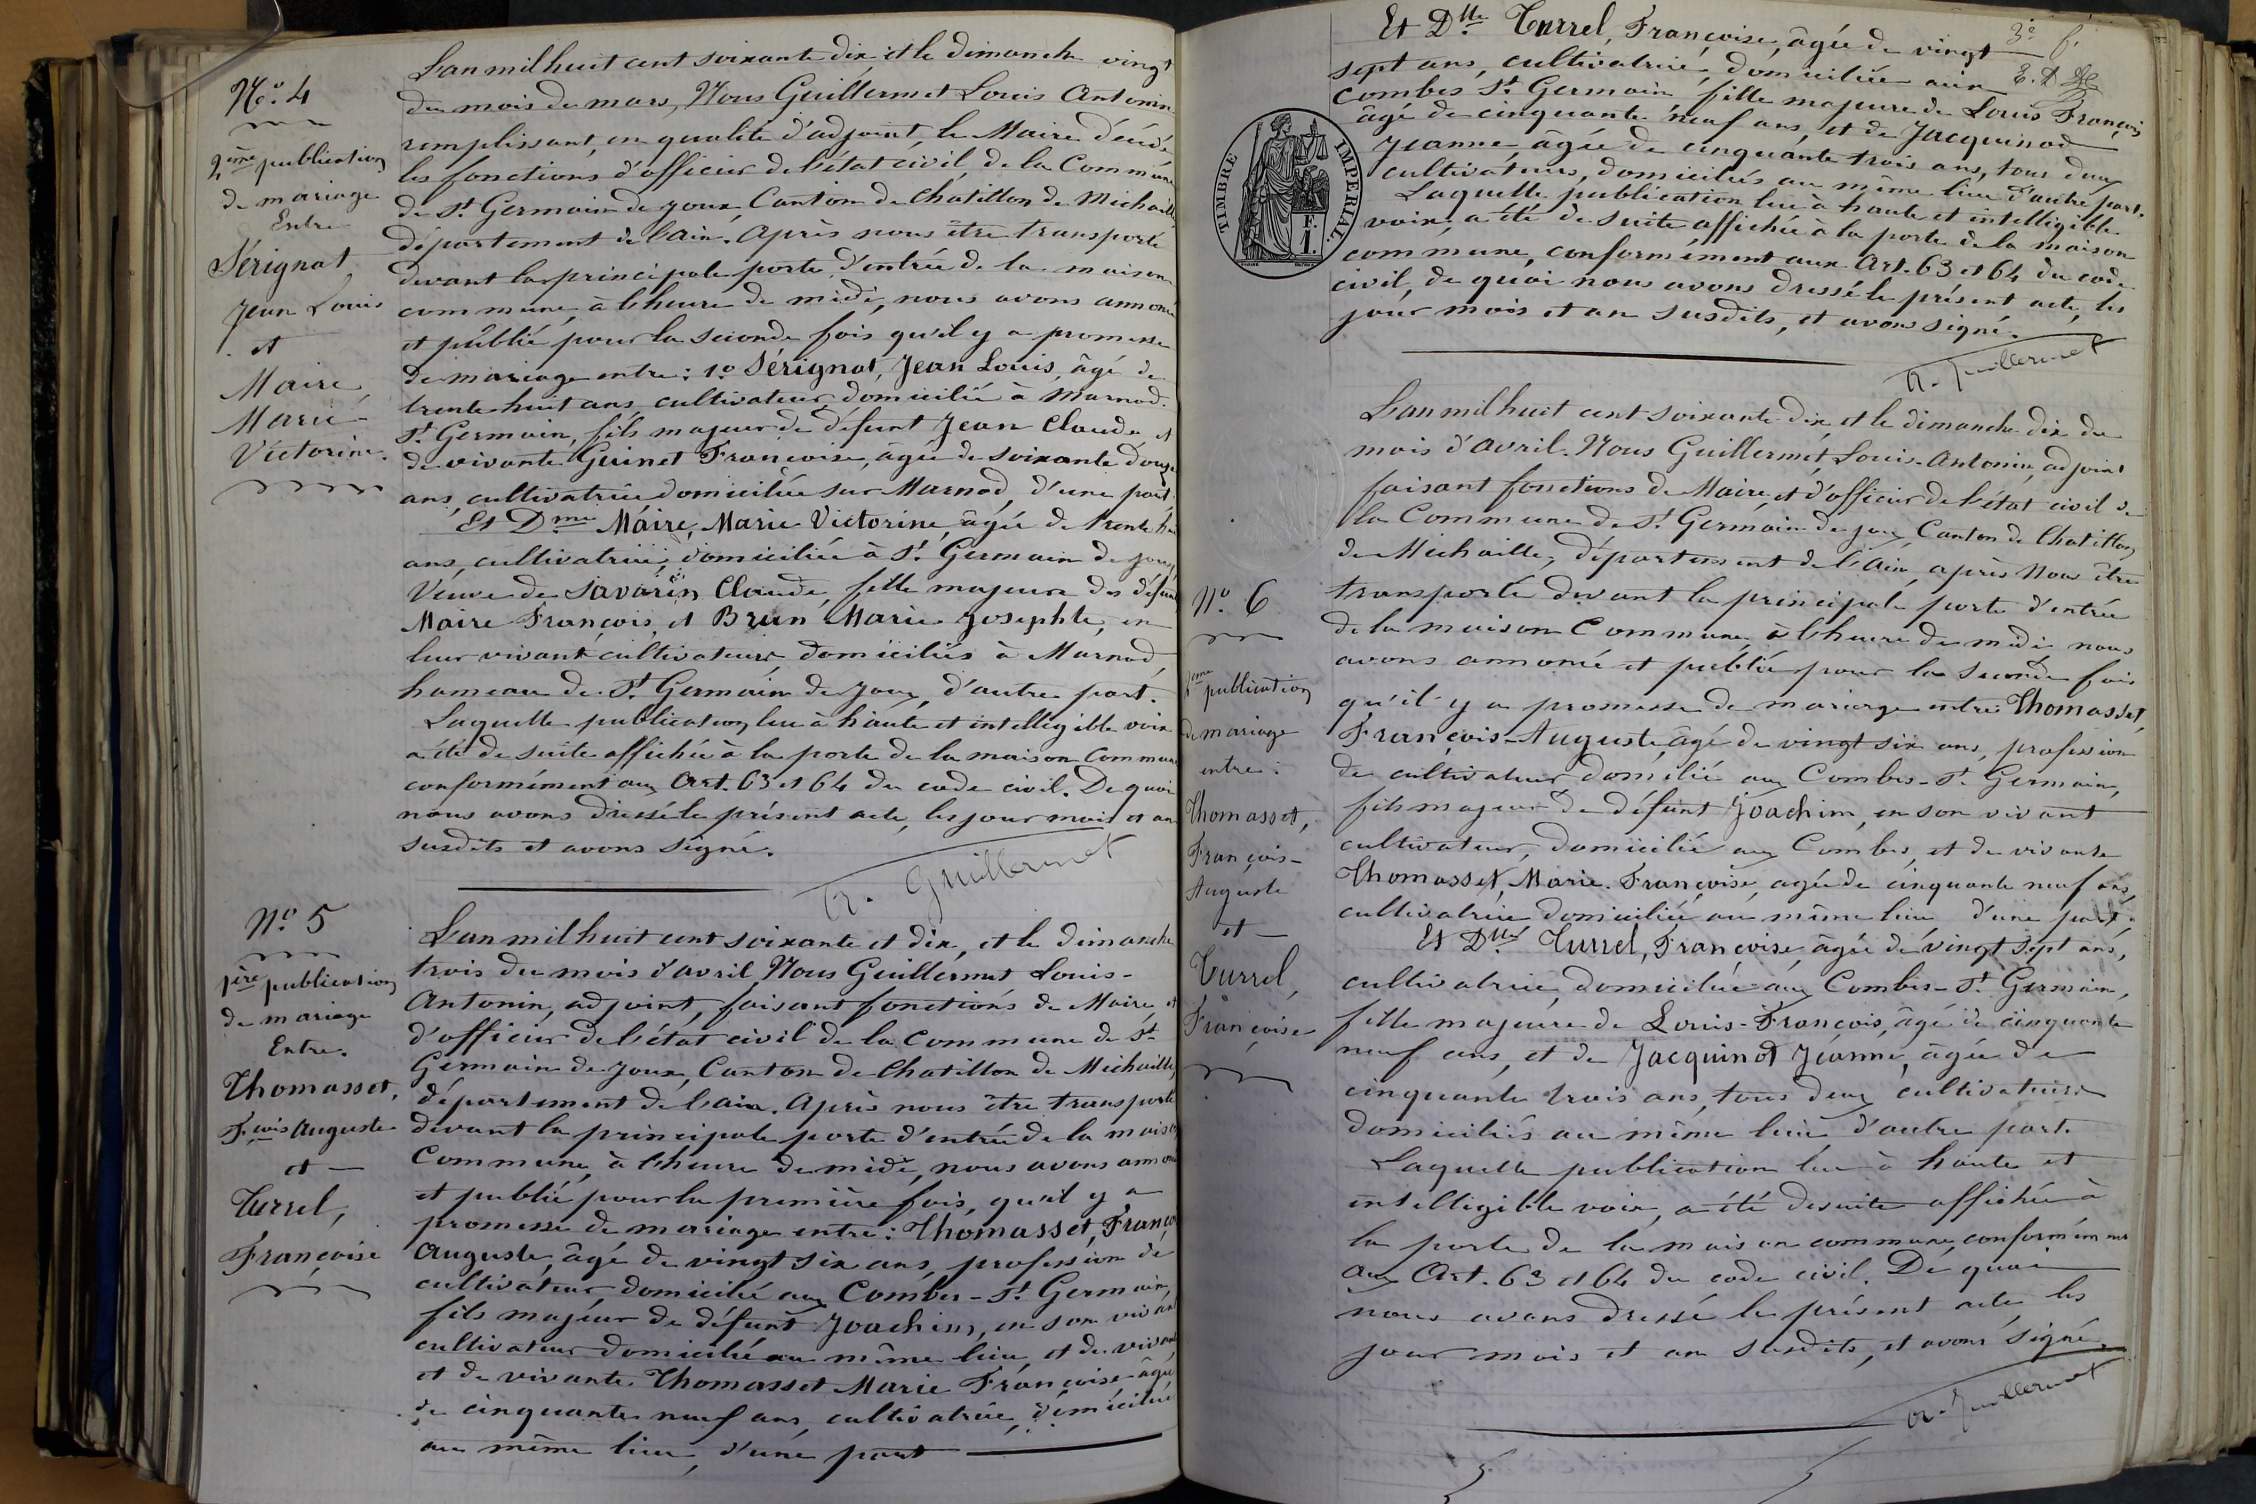 No. 4
2ème publication
de mariage
Entre
Sérignat
Jean Louis
et
Maire,
Marie
Victorine.
L'an mil huit cent soixante dix, et le dimanche vingt
du mois de mars, Nous Guillermet Louis Antonin
remplissant, en qualité d'adjoint, le Maire décédé
les fonctions d'officier de l'état civil, de la Commune
de St. Germain de joux, Canton de Chatillon de Michaille
département de l'ain. Après nous être transporté
devant la principale porte d'entrée de la maison
commune, à l'heure de midi, nous avons annoncé
et publié pour la seconde fois qu'il y a promesse
de mariage entre: 1o Sérignat, Jean Louis, âgé de
trente huit ans, cultivateur, domicilié à Marnod.
St Germain, fils majeur de défunt Jean Claude et
de vivante Guinet Françoise, âgée de soixante douze
ans, cultivatrice domiciliée sur Marnod, d'une part.
Et Dme Maire, Marie Victorine, âgée de trente huit
ans, cultivatrice, domiciliée à St Germain de joux
Veuve de Savarin Claude, fille majeure des défunts
Maire François, et Brun Marie Josephte, en
leur vivant cultivateurs, domiciliés à Marnod,
hameau de St Germain de Joux, d'autre part.
Laquelle publication, lue à haute et intelligible voix
a été de suite affichée à la porte de la maison Commune
conformément aux Art. 63 et 64 du code civil. De quoi
nous avons dressé le présent acte, les jour mois et an
susdits et avons signé.
A. Guillermet
No 5
1ère publication
de mariage
Entre.
Thomasset,
Fçois Auguste
et
Turrel,
Françoise
L'an mil huit cent soixante et dix, et le dimanche
trois du mois d'avril, Nous Guillermet Louis-
Antonin, adjoint, faisant fonctions de Maire, et
d'officier de l'état civil de la Commune de St
Germain de Joux, Canton de Chatillon de Michaille,
département de l'ain. Après nous être transporté
devant la principale porte d'entrée de la maison
Commune, à l'heure de midi, nous avons annoncé
et publié pour la première fois, qu'il y a
promesse de mariage entre: Thomasset, François
Auguste, âgé de vingt six ans, profession de
cultivateur, domicilié aux Combes-St Germain,
fils majeur de défunt Joachim, en son vivant
cultivateur domicilié au même lieu, et de vivante
et de vivante Thomasset Marie Françoise âgée
de cinquante neuf ans, cultivatrice, domiciliée
au même lieu, d'une part
3e f.
Et Dlle Turrel, Françoise, âgée de vingt
sept ans, cultivatrice, domiciliée aux
combes St Germain fille majeure de Louis François
âgé de cinquante neuf ans, et de Jacquinod
Jeanne, âgée de cinquante trois ans, tous deux
cultivateurs, domiciliés au même lieu d'autre part.
Laquelle publication lue à haute et intelligible
voix, a été de suite affichée à la porte de la maison
commune, conformément aux Art. 63 et 64 du code
civil, de quoi nous avons dressé le présent acte, les
jour mois et an susdits, et avons signé.
A. Guillermet
TIMBRE IMPÉRIAL.
F.
1.
No. 6
2ème publication
de mariage
entre:
Thomasset,
François-
Auguste
et
Turrel,
Françoise
L'an mil huit cent soixante dix et le dimanche dix du
mois d'avril. Nous Guillermet, Louis-Antonin, adjoint
faisant fonctions de Maire et d'officier de l'état civil de
la Commune de St Germain de joux, Canton de Chatillon
de Michaille, département de l'Ain, après Nous être
transporté devant la principale porte d'entrée
de la maison Commune, à l'heure de midi nous
avons annoncé et publié pour la seconde fois
qu'il y a promesse de mariage entre: Thomasset,
François-Auguste, âgé de vingt six ans, profession
de cultivateur domicilié aux Combes-St Germain,
fils majeur de défunt Joachim, en son vivant
cultivateur, domicilié aux Combes, et de vivante
Thomasset, Marie. Françoise, agée de cinquante neuf ans,
cultivatrice domiciliée au même lieu d'une part.
Et Dlle Turrel, Françoise, âgée de vingt sept ans,
cultivatrice, domiciliée aux Combes-St Germain,
fille majeure de Louis-François, âgé de cinquante
neuf ans, et de Jacquinod Jéanne, âgée de
cinquante trois ans, tous deux cultivateurs
domiciliés au même lieu d'autre part.
Laquelle publication lue à haute et
intelligible voix, a été de suite affichée à
la porte de la maison commune, conformément
aux Art. 63 et 64 du code civil. De quoi
nous avons dressé le présent acte, les
jour mois et an susdits, et avons signé.
A. Guillermet